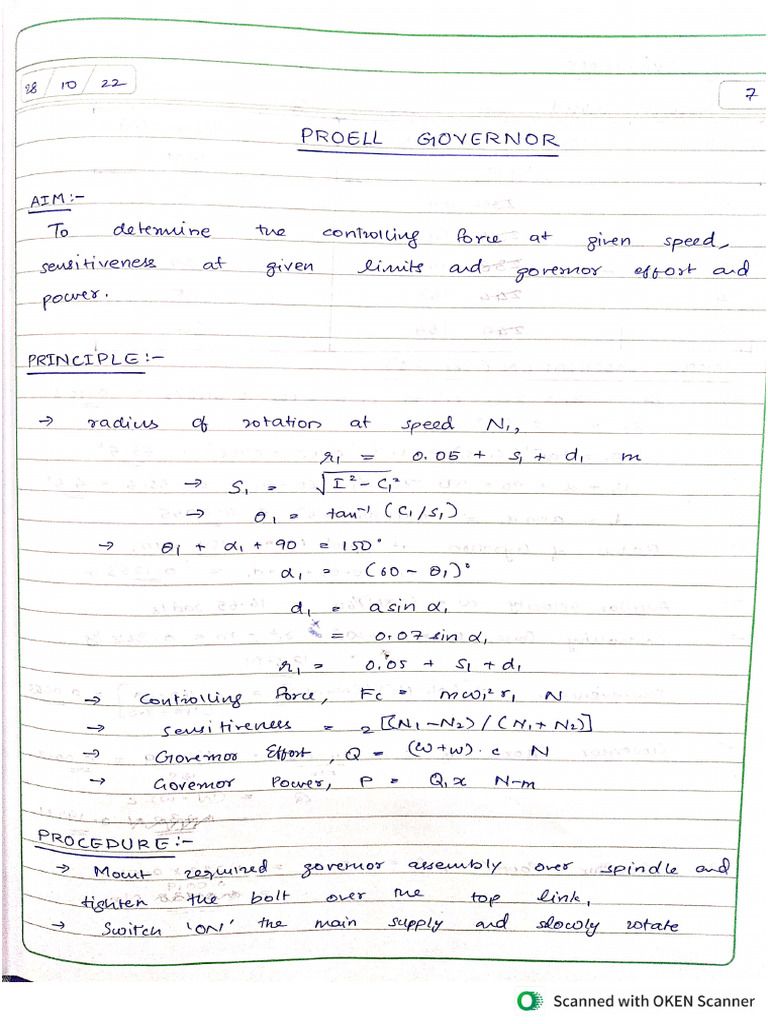 28 / 10 / 22
7
PROELL GOVERNOR
AIM:-
To determine the controlling force at given speed,
sensitiveness at given limits and governor effort and
power.
PRINCIPLE:-
→ radius of rotation at speed N₁,
r₁ = 0.05 + s₁ + d₁ m
→ S₁ = √(I² - C₁²)
→ θ₁ = tan⁻¹ (C₁/S₁)
→ θ₁ + α₁ + 90 = 150°
α₁ = (60 - θ₁)°
d₁ = a sin α₁
= 0.07 sin α₁
r₁ = 0.05 + s₁ + d₁
→ Controlling force, Fc = mω₁² r₁ N
→ Sensitiveness = 2 [(N₁-N₂) / (N₁+N₂)]
→ Governor Effort, Q = (W+w) . c N
→ Governor Power, P = Q₁x N-m
PROCEDURE:-
→ Mount required governor assembly over spindle and
tighten the bolt over the top link,
→ Switch 'ON' the main supply and slowly rotate
Scanned with OKEN Scanner